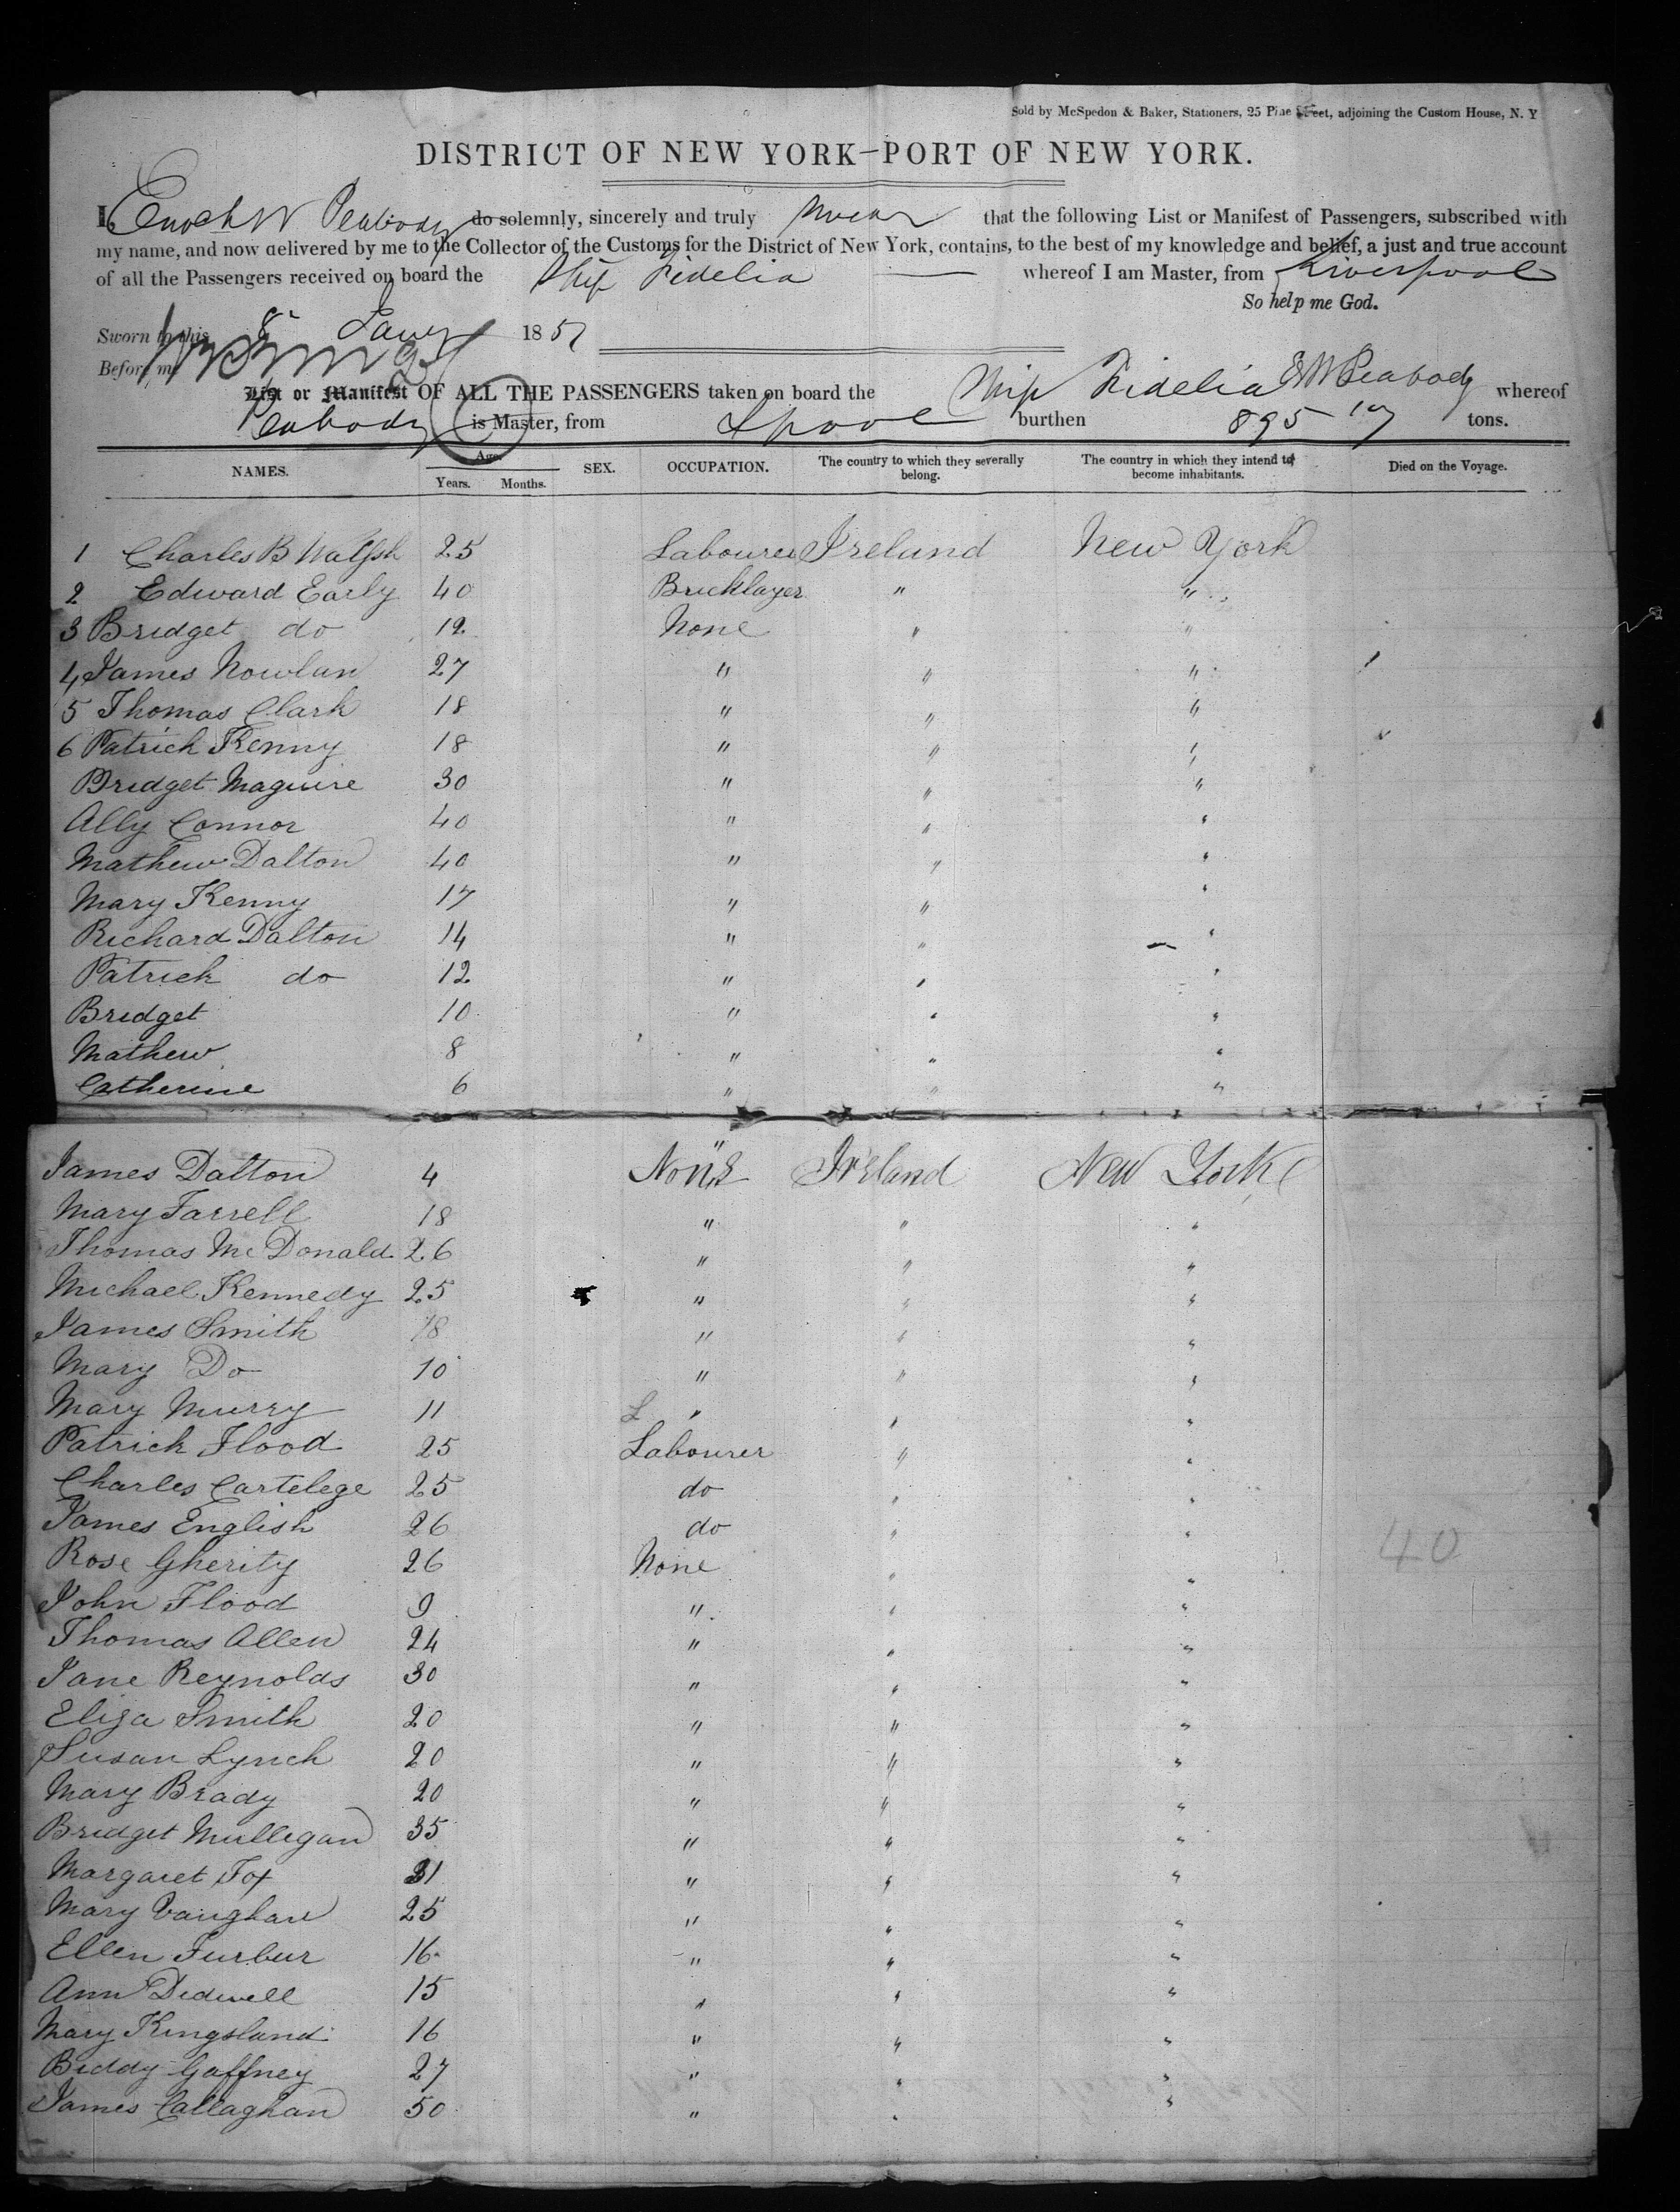 Sold by McSpedon & Baker, Stationers, 25 Pine Street, adjoining the Custom House, N. Y
DISTRICT OF NEW YORK—PORT OF NEW YORK.
I, Enoch W Peabody do solemnly, sincerely and truly swear that the following List or Manifest of Passengers, subscribed with
my name, and now delivered by me to the Collector of the Customs for the District of New York, contains, to the best of my knowledge and belief, a just and true account
of all the Passengers received on board the Ship Fidelia — whereof I am Master, from Liverpool
So help me God.
Sworn to this 8 Jany 1851
Before me
List or Manifest OF ALL THE PASSENGERS taken on board the Ship Fidelia EWPeabody whereof
Peabody is Master, from Lpool burthen 895 tons.
NAMES. Age. Years. Months. SEX. OCCUPATION. The country to which they severally belong. The country in which they intend to become inhabitants. Died on the Voyage.
1 Charles B Walsh 25 Labourer Ireland New York
2 Edward Early 40 Bricklayer " "
3 Bridget do 12 None " "
4 James Nowlan 27 " " "
5 Thomas Clark 18 " " "
6 Patrick Kenny 18 " " "
Bridget Maguire 30 " " "
Ally Connor 40 " " "
Mathew Dalton 40 " " "
Mary Kenny 17 " " "
Richard Dalton 14 " " "
Patrick do 12 " " "
Bridget 10 " " "
Mathew 8 " " "
Catherine 6 " " "
James Dalton 4 None Ireland New York
Mary Farrell 18 " " "
Thomas McDonald 26 " " "
Michael Kennedy 25 " " "
James Smith 18 " " "
Mary Do 10 " " "
Mary Murry 11 " " "
Patrick Flood 25 Labourer " "
Charles Cartelege 25 do " "
James English 26 do " "
Rose Gherity 26 None " "
40
John Flood 9 " " "
Thomas Allen 24 " " "
Jane Reynolds 30 " " "
Eliza Smith 20 " " "
Susan Lynch 20 " " "
Mary Brady 20 " " "
Bridget Mulligan 35 " " "
Margaret Fox 31 " " "
Mary Vaughan 25 " " "
Ellen Furbur 16 " " "
Ann Dedwell 15 " " "
Mary Kingsland 16 " " "
Biddy Gaffney 27 " " "
James Callaghan 50 " " "